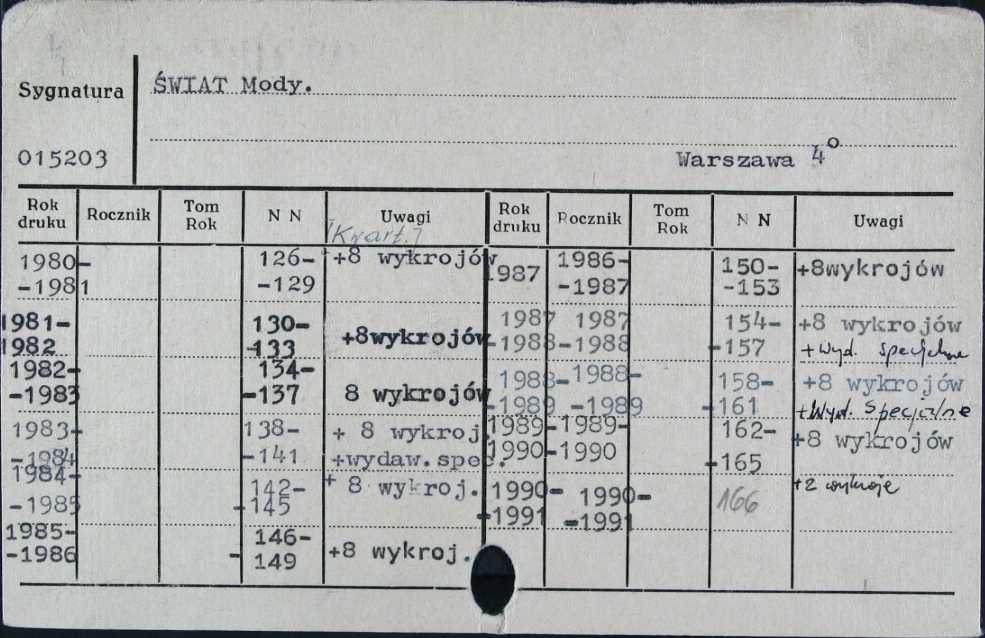 ŚWIAT Mody.
Sygnatura
015203
Warszawa 4°
Rok druku Rocznik Tom Rok N N Uwagi Rok druku Rocznik Tom Rok N N Uwagi
[Kwart.]
1980- 126- +8 wykrojów
-1981 -129
1981- 130- +8wykrojów
1982 -133
1982- 134-
-1983 -137 8 wykrojów
1983- 138- + 8 wykroj.
-1984 -141 +wydaw.spec.
1984- 142- + 8 wykroj.
-1985 -145
1985- 146- +8 wykroj.
-1986 - 149
1987 1986- 150- +8wykrojów
-1987 -153
1987 1987 154- +8 wykrojów
-1988 -1988 -157 + wyd. specjalne
1988- 1988- 158- +8 wykrojów
-1989 -1989 -161 + Wyd. Specjalne
1989- 1989- 162- +8 wykrojów
1990 -1990 -165
1990- 1990- 166 +2 wykroje
-1991 -1991